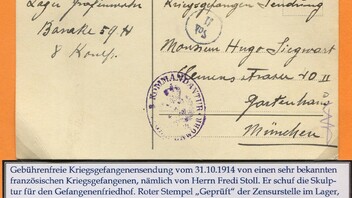 Lager Grafenwöhr
Baracke 59 H
8 Komp.
Kriegsgefangen Sendung
Monsieur Hugo Siegwart
Clemens strasse 20 II
Gartenhaus
München
KOMMANDANTUR
Gebührenfreie Kriegsgefangenensendung vom 31.10.1914 von einen sehr bekannten
französischen Kriegsgefangenen, nämlich von Herrn Fredi Stoll. Er schuf die Skulp-
tur für den Gefangenenfriedhof. Roter Stempel „Geprüft" der Zensurstelle im Lager,